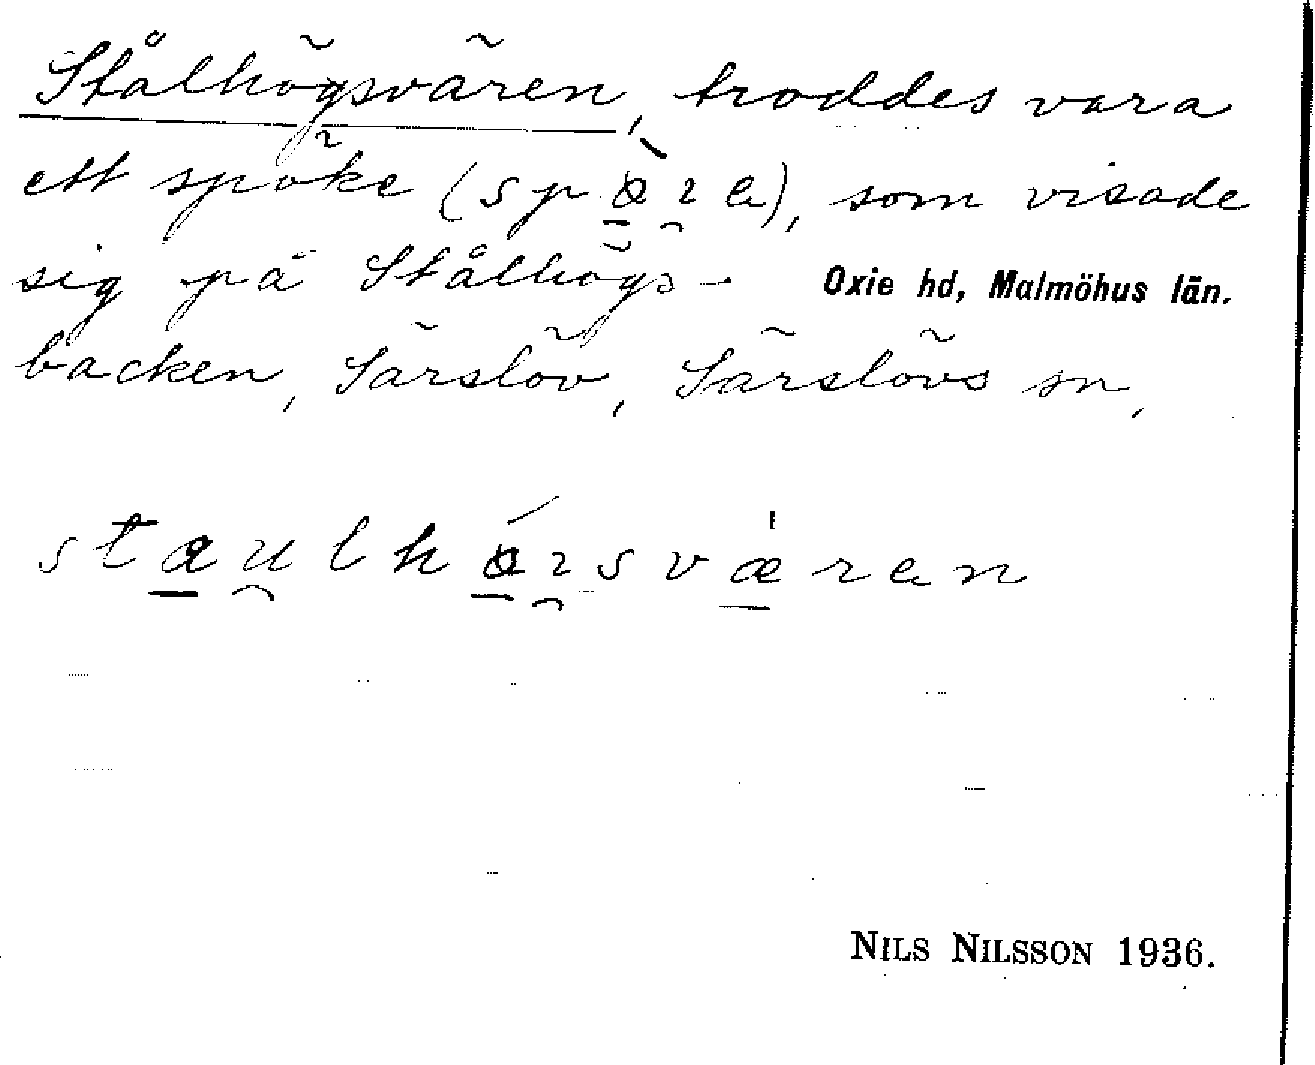 Stålhögsvären, troddes vara
ett spöke (spøꝛe), som visade
sig på Stålhögs-
Oxie hd, Malmöhus län.
backen, Särslöv, Särslövs sn,
stæulhǿꝛsværen
NILS NILSSON 1936.